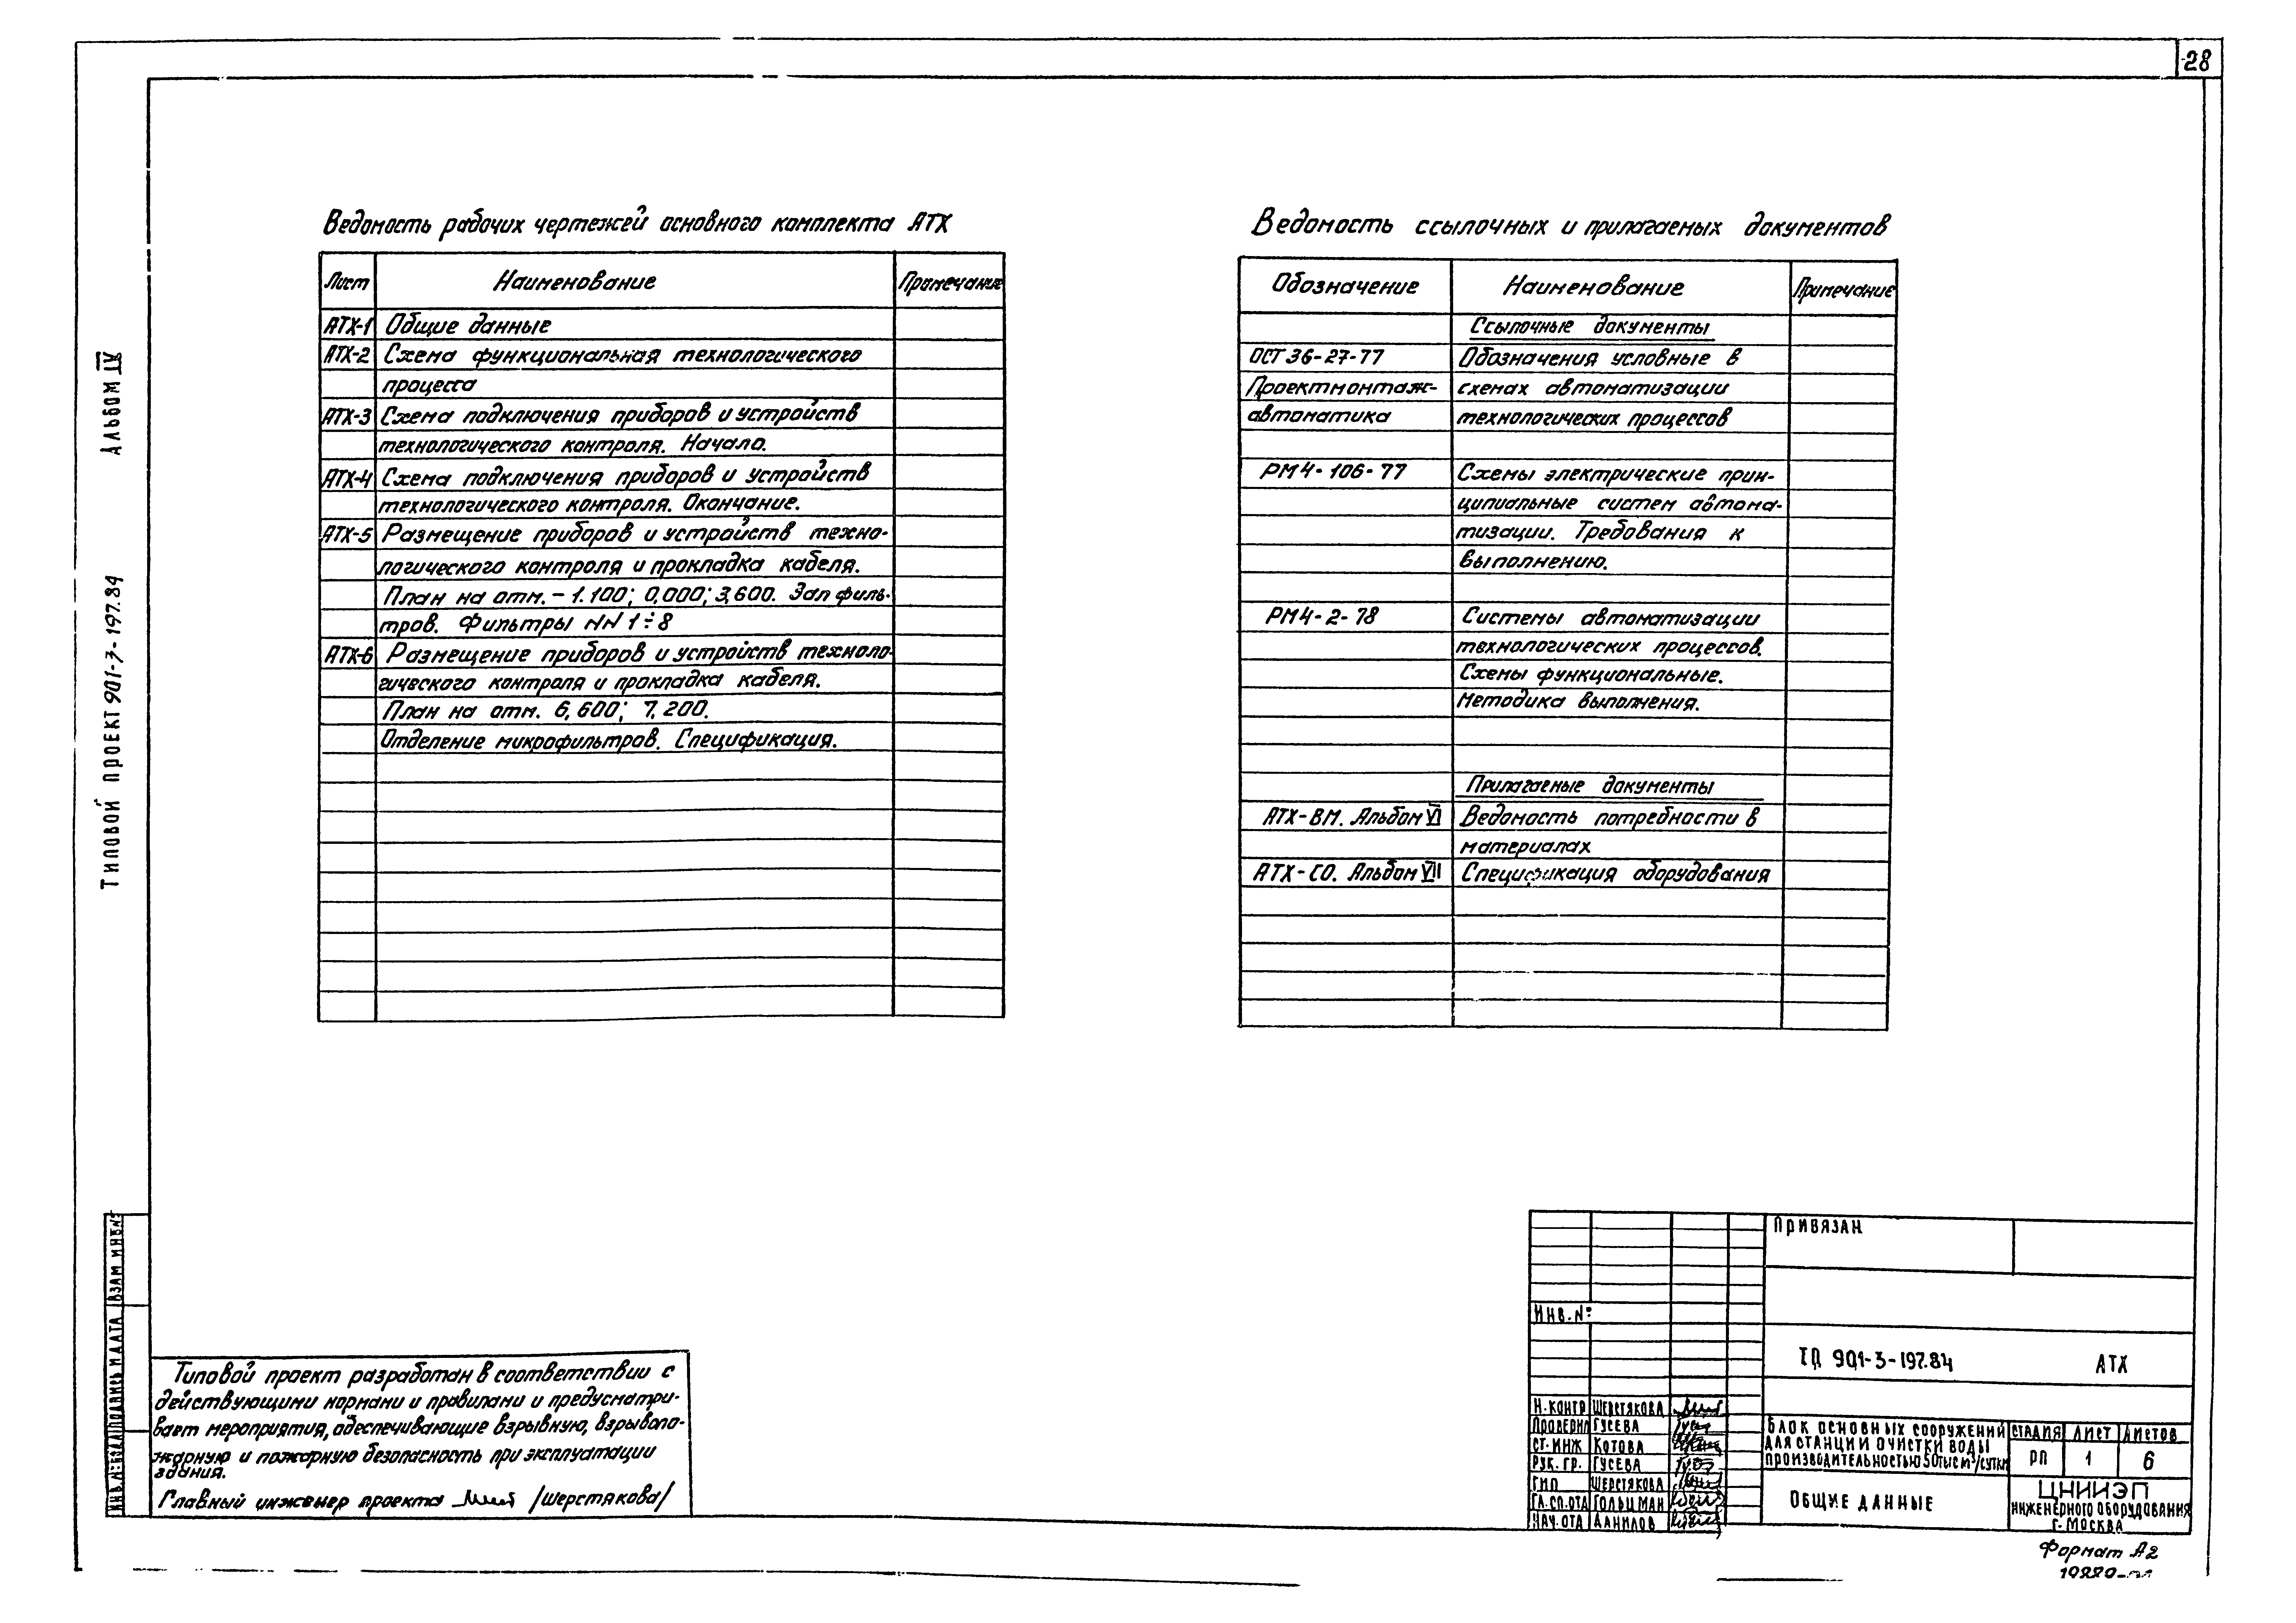 28
Альбом IV
Типовой проект 901-3-197.84
Ведомость рабочих чертежей основного комплекта АТХ
Лист Наименование Примечание
АТХ-1 Общие данные
АТХ-2 Схема функциональная технологического
процесса
АТХ-3 Схема подключения приборов и устройств
технологического контроля. Начало.
АТХ-4 Схема подключения приборов и устройств
технологического контроля. Окончание.
АТХ-5 Размещение приборов и устройств техно-
логического контроля и прокладка кабеля.
План на отм. -1.100; 0,000; 3,600. Зал филь-
тров. Фильтры NN 1÷8
АТХ-6 Размещение приборов и устройств техноло-
гического контроля и прокладка кабеля.
План на отм. 6,600; 7,200.
Отделение микрофильтров. Спецификация.
Ведомость ссылочных и прилагаемых документов
Обозначение Наименование Примечание
Ссылочные документы
ОСТ 36-27-77 Обозначения условные в
Проектмонтаж- схемах автоматизации
автоматика технологических процессов
РМ4-106-77 Схемы электрические прин-
ципиальные систем автома-
тизации. Требования к
выполнению.
РМ4-2-78 Системы автоматизации
технологических процессов.
Схемы функциональные.
Методика выполнения.
Прилагаемые документы
АТХ-ВМ. Альбом VI Ведомость потребности в
материалах
АТХ-СО. Альбом VII Спецификация оборудования
Взам инв №
Подпись и дата
Инв. №
Типовой проект разработан в соответствии с
действующими нормами и правилами и предусматри-
вает мероприятия, обеспечивающие взрывную, взрывопо-
жарную и пожарную безопасность при эксплуатации
здания.
Главный инженер проекта /Шерстякова/
Привязан
Инв. №
ТП 901-3-197.84 АТХ
Н. контр Шерстякова
Проверил Гусева
Ст. инж Котова
Рук. гр. Гусева
ГИП Шерстякова
Гл. сп. отд Гольцман
Нач. отд Данилов
Блок основных сооружений
для станции очистки воды
производительностью 50 тыс м³/сутки
Стадия Лист Листов
РП 1 6
Общие данные
ЦНИИЭП
инженерного оборудования
г. Москва
Формат А2